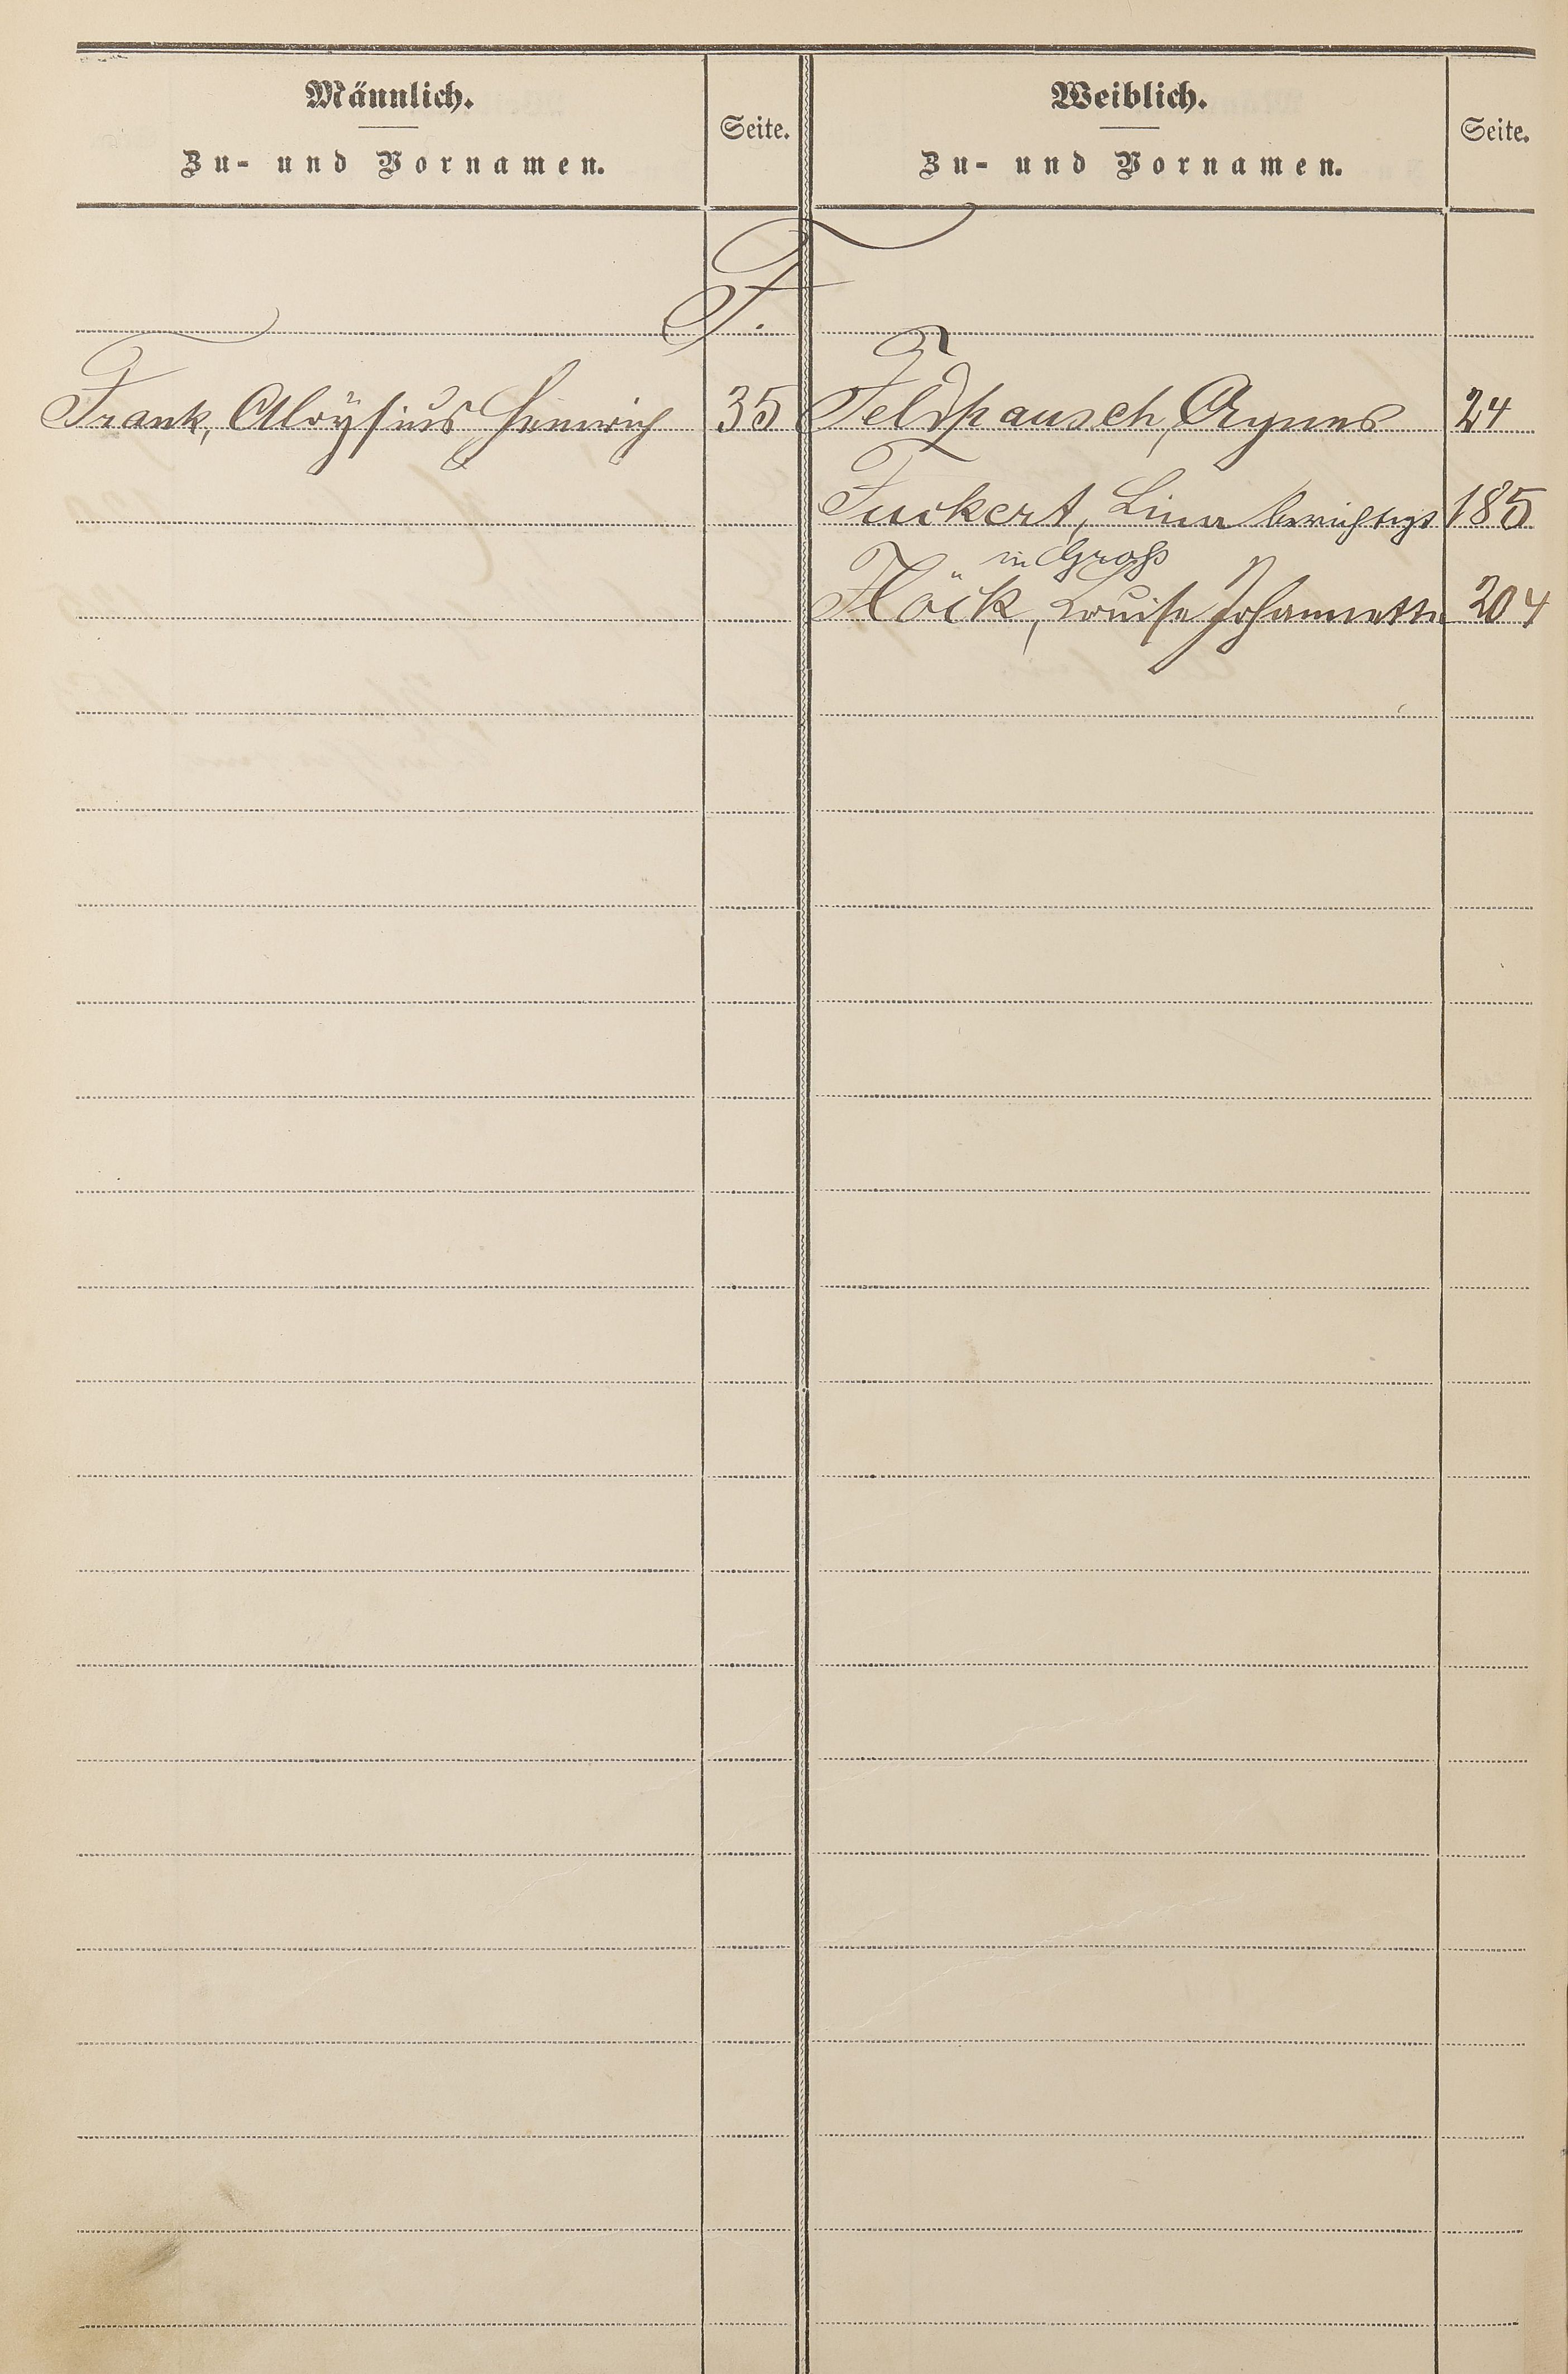 Männlich.
Zu- und Vornamen.
Seite.
Weiblich.
Zu- und Vornamen.
Seite.
F.
Frank, Aloÿsius Heinrich 35
Feldpausch, Agnes 24
Fuckert, Lina berichtigt 185
in Groß
Flöck, Louise Johannette 204